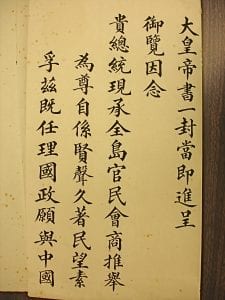 大皇帝書一封當即進呈
御覽因念
貴總統現承全島官民會商推舉
為尊自係賢聲久著民望素
孚茲既任理國政願與中國